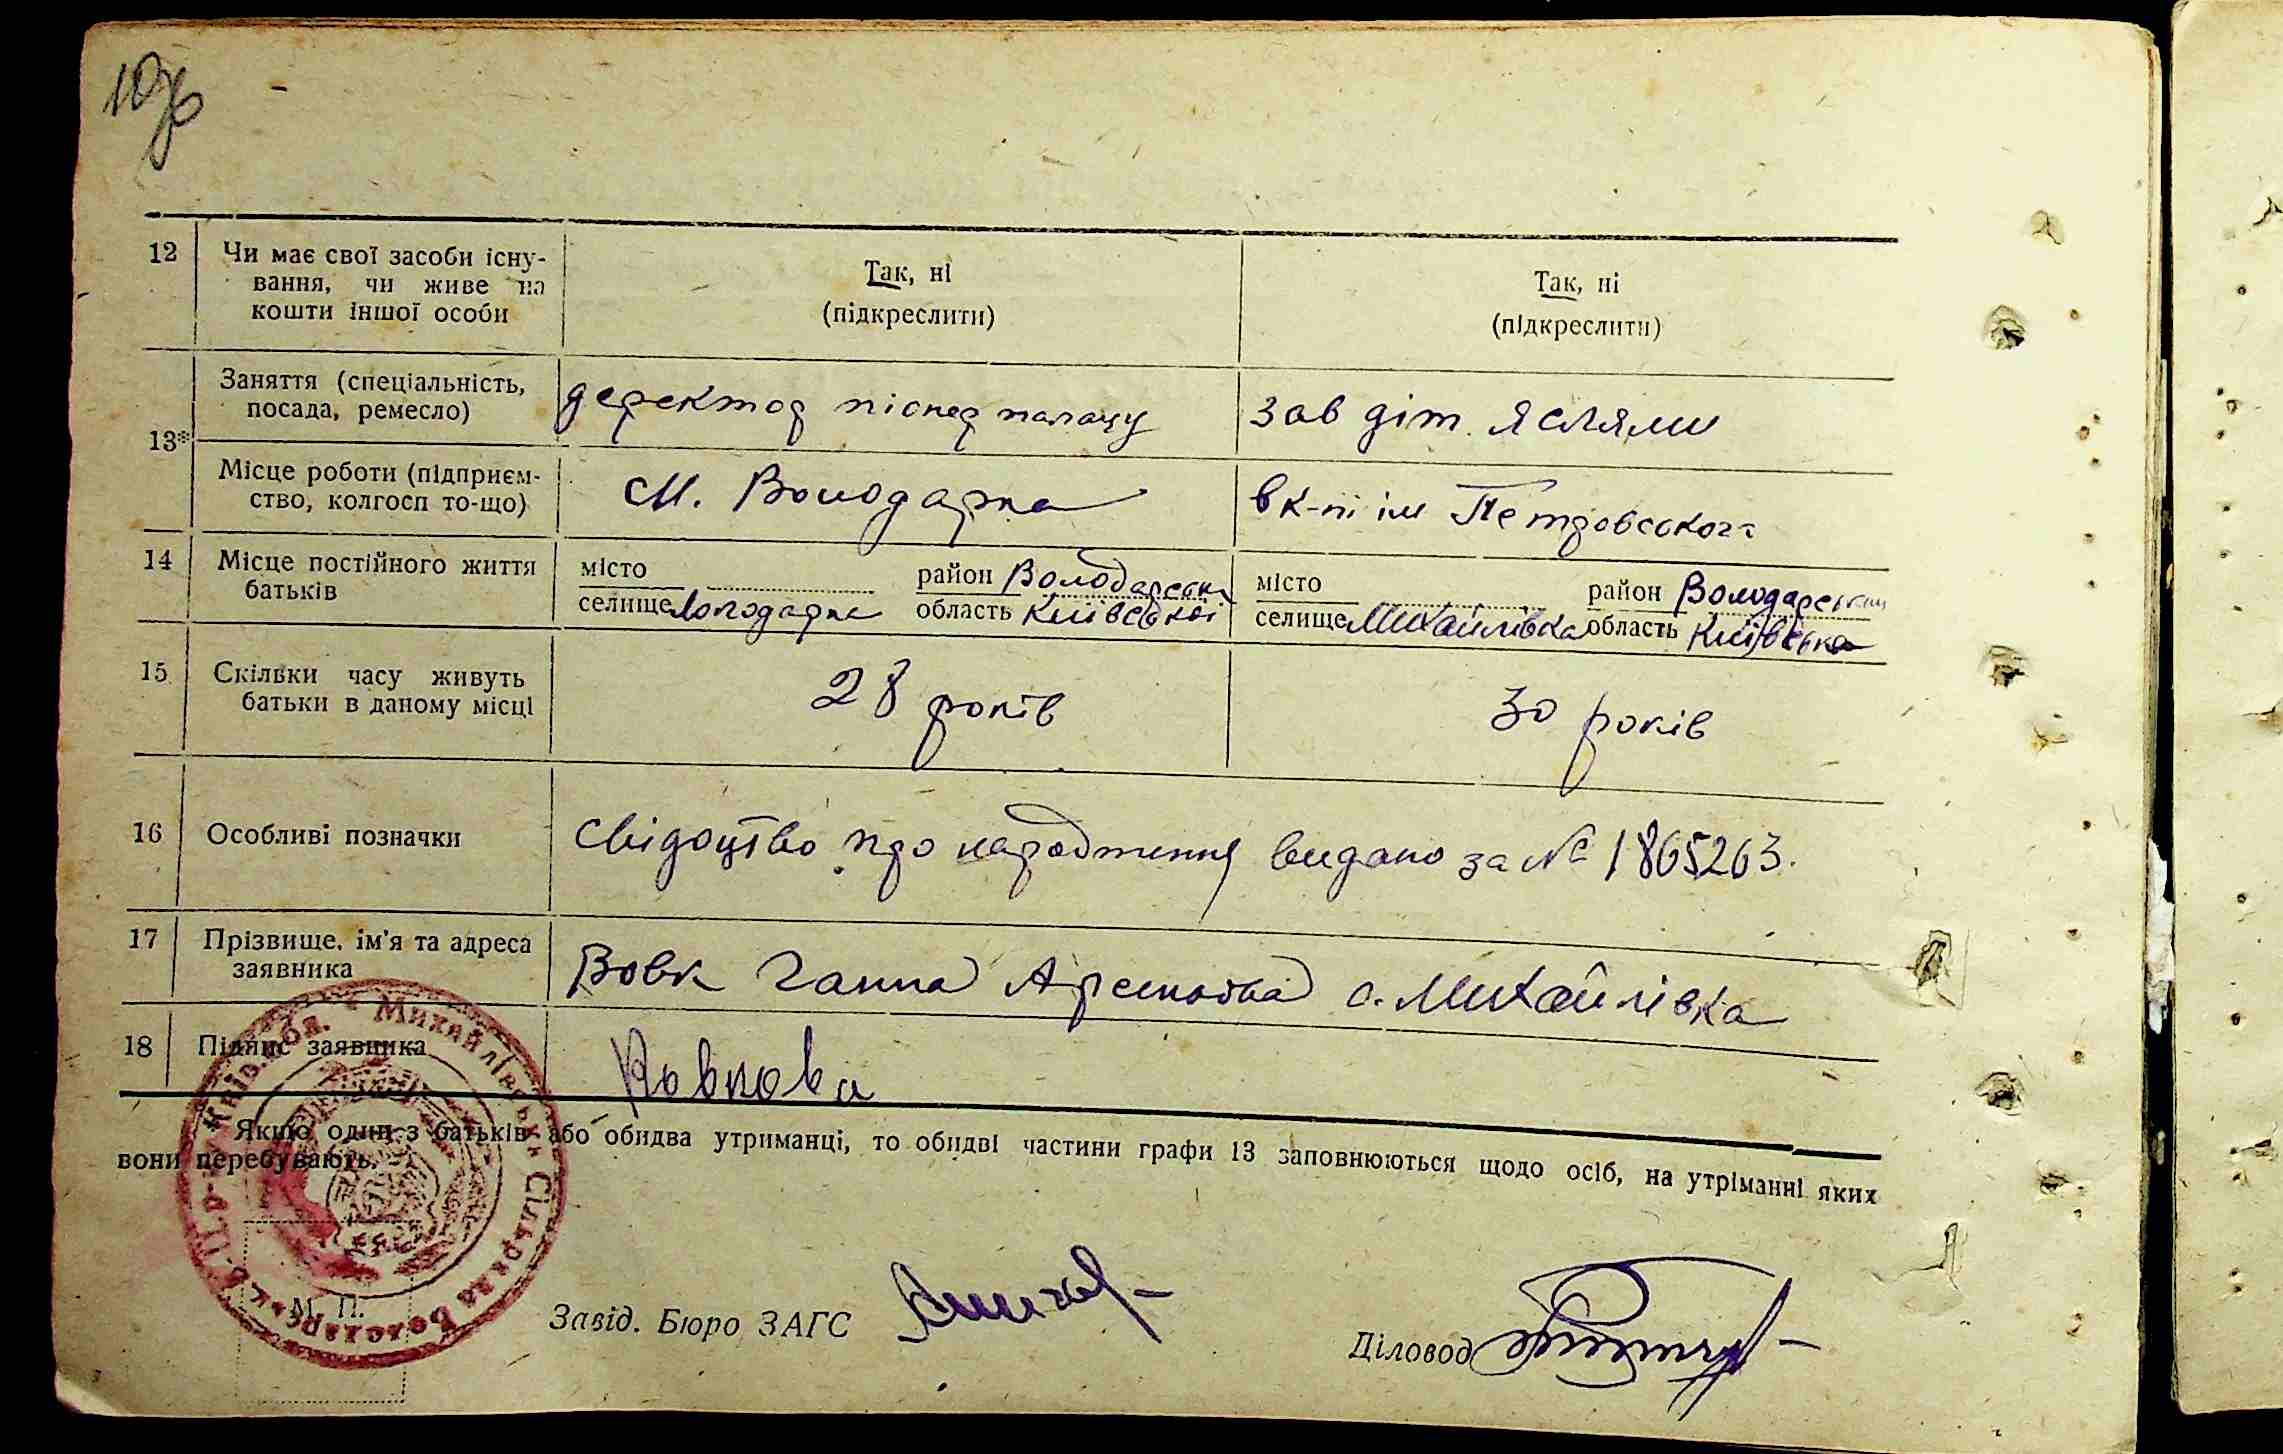 12 Чи має свої засоби існу-
вання, чи живе на
кошти іншої особи
Так, ні
(підкреслити)
Так, ні
(підкреслити)
13*
Заняття (спеціальність,
посада, ремесло)
деректор піонер палацу
зав діт. яслями
Місце роботи (підприєм-
ство, колгосп то-що)
м. Володарка
в к-пі ім Петровського
14 Місце постійного життя
батьків
місто район Володарськ
селище Володарка область Київської
місто район Володарський
селище Михайлівка область Київська
15 Скільки часу живуть
батьки в даному місці
28 років
30 років
16 Особливі позначки
Свідоцтво про народження видано за № 1865263.
17 Прізвище, ім'я та адреса
заявника
Вовк Ганна Арсеновна с. Михайлівка
18 Підпис заявника
Якщо один з батьків або обидва утриманці, то обидві частини графи 13 заповнюються щодо осіб, на утріманні яких
вони перебувають.
Михайлівська Сільрада
Київ. обл.
М. П.
Завід. Бюро ЗАГС
Діловод